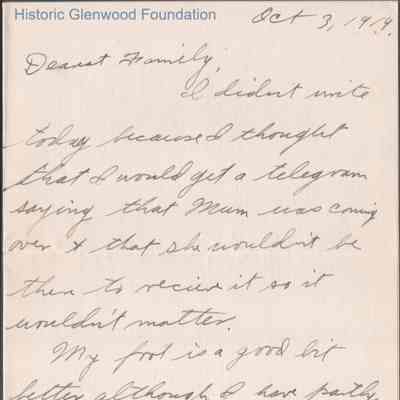 Historic Glenwood Foundation
Oct 3, 1919.
Dearest Family,
I didnt write
today because I thought
that I would get a telegram
saying that Mum was coming
over & that she wouldn't be
there to recieve it so it
wouldn't matter.
My foot is a good bit
better although I have partly